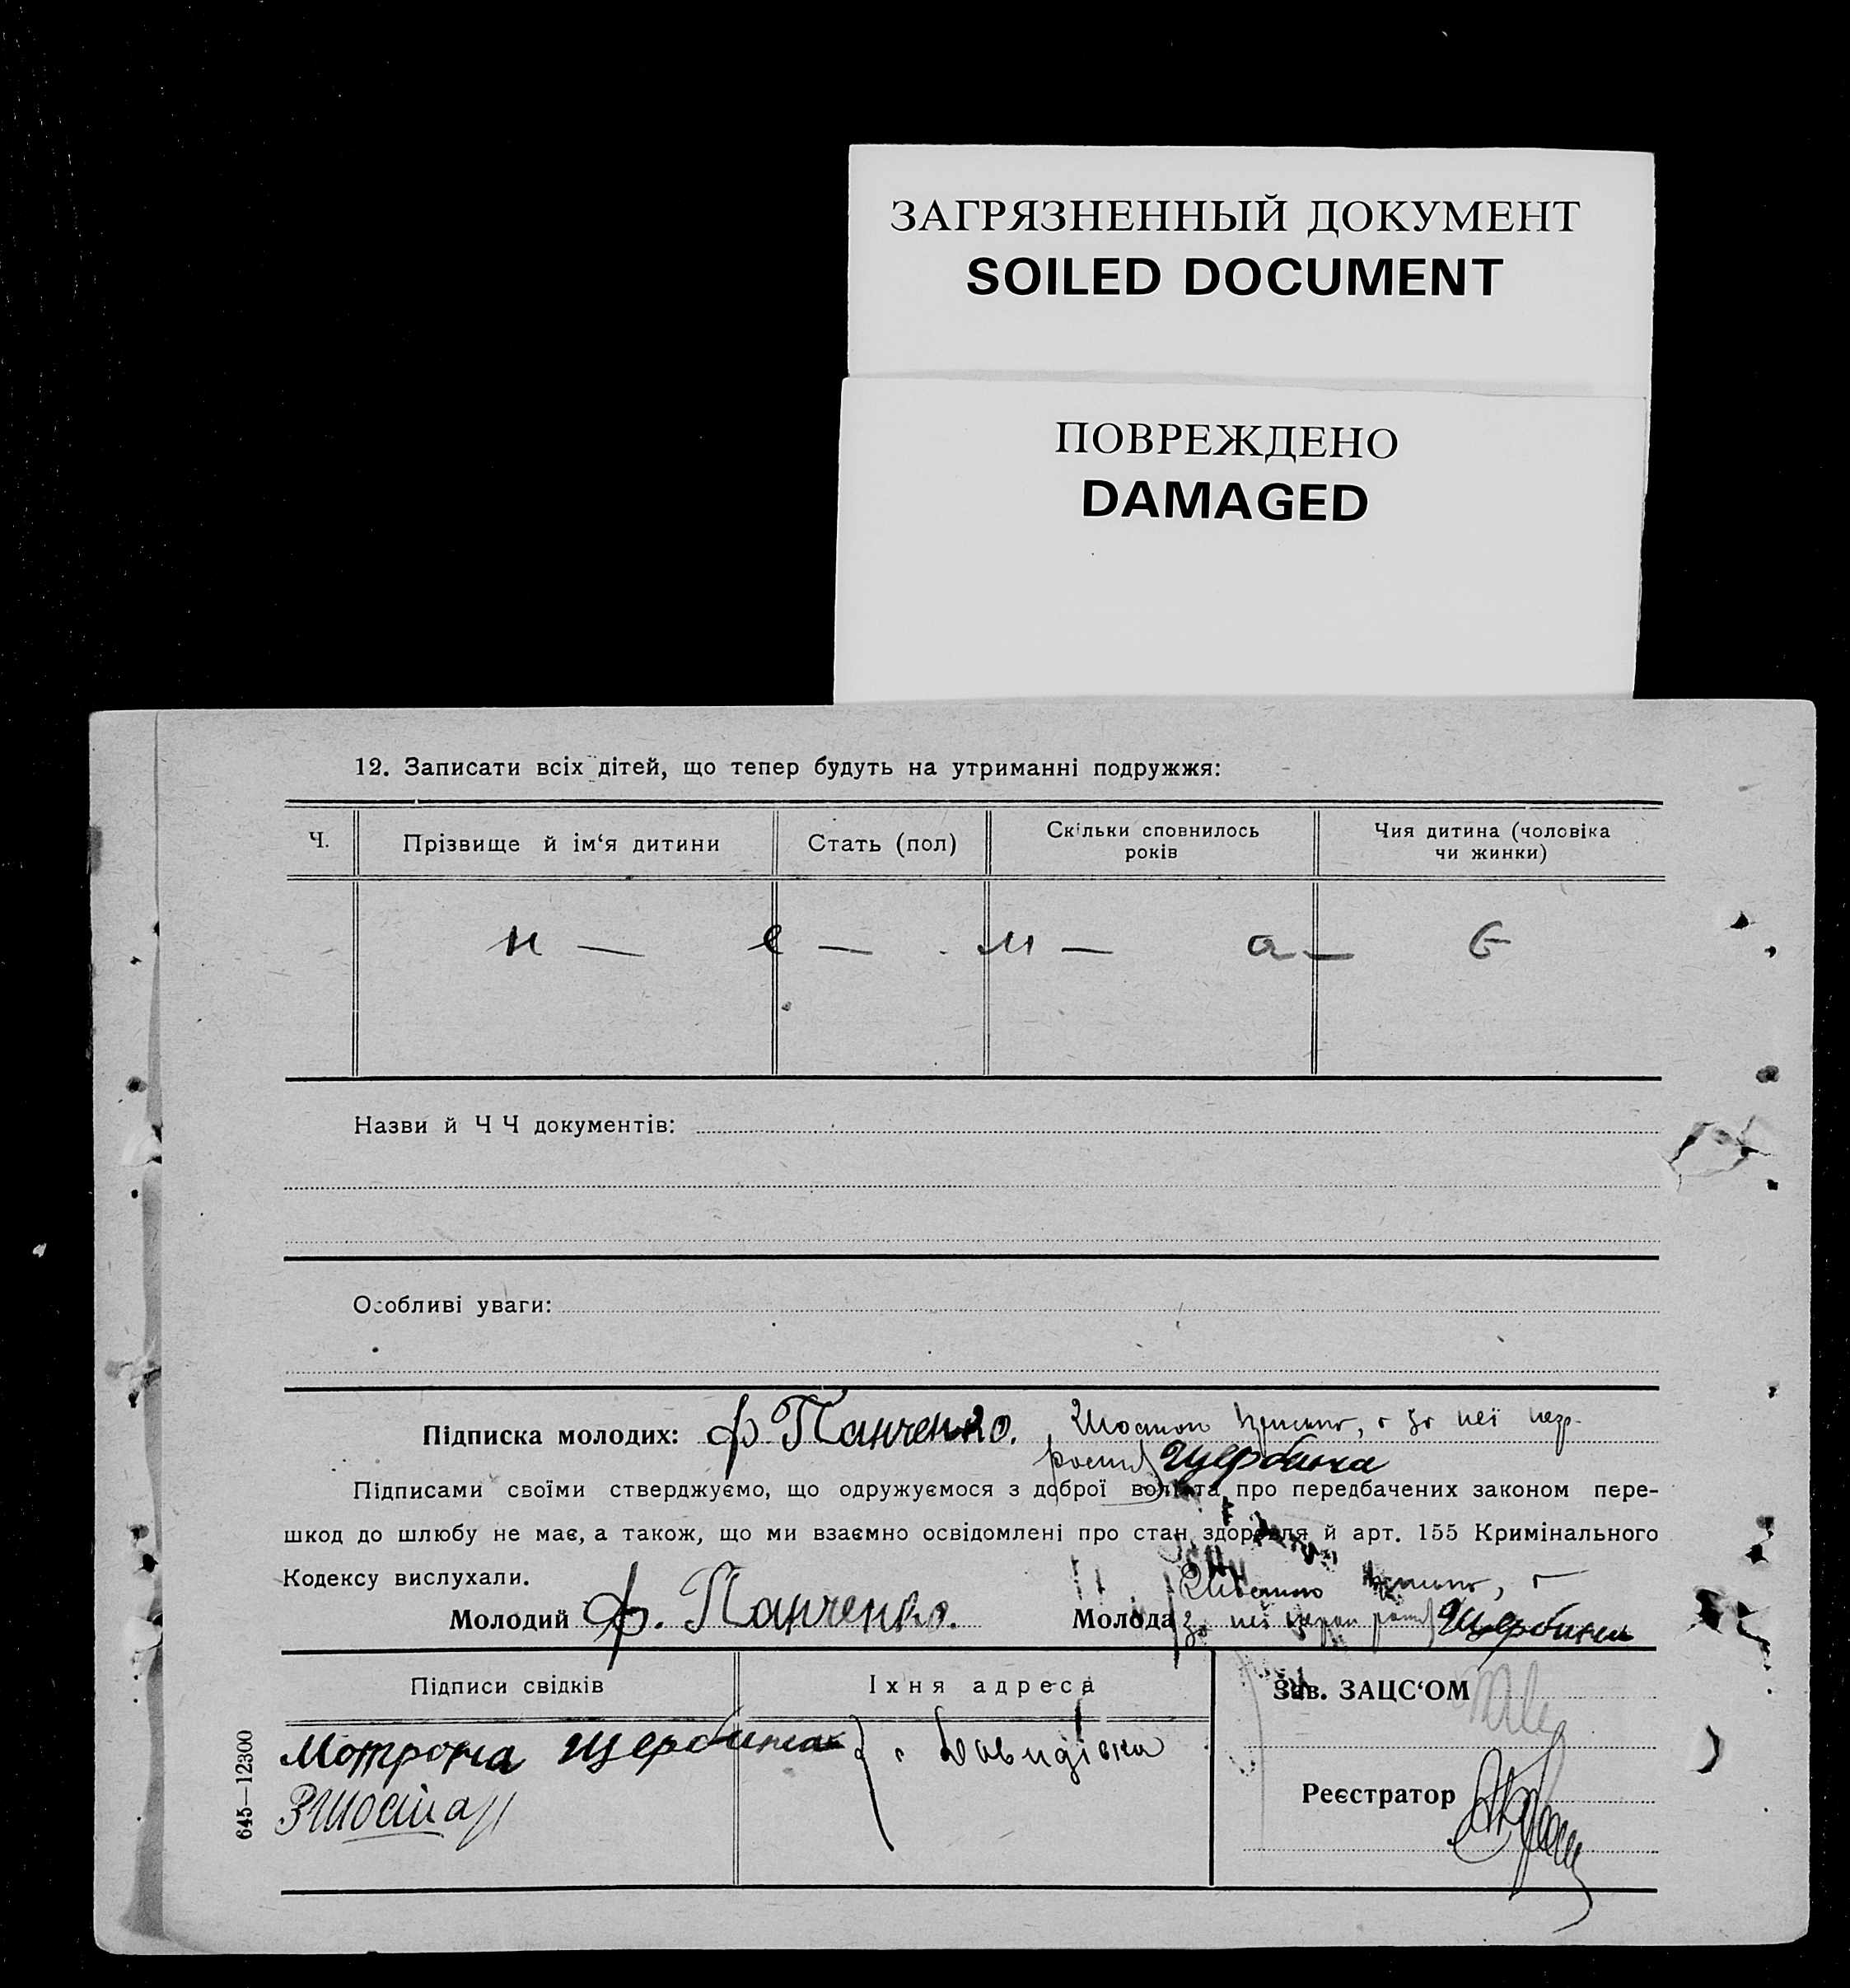 ЗАГРЯЗНЕННЫЙ ДОКУМЕНТ
SOILED DOCUMENT
ПОВРЕЖДЕНО
DAMAGED
12. Записати всіх дітей, що тепер будуть на утриманні подружжя:
Ч. Прізвище й ім‘я дитини Стать (пол) Скільки сповнилось років Чия дитина (чоловіка чи жинки)
н — е — м — а — Є
Назви й Ч Ч документів:
Особливі уваги:
Підписка молодих: Ф. Панченко. за неї
Щербина
Підписами своїми стверджуємо, що одружуємося з доброї волі та про передбачених законом пере-
шкод до шлюбу не має, а також, що ми взаємно освідомлені про стан здоровля й арт. 155 Кримінального
Кодексу вислухали.
Молодий Ф. Панченко. Молода за неї Щербина
Підписи свідків Їхня адреса Зав. ЗАЦС‘ОМ
Мотрона Щербина с. Давидівка
Реєстратор
645—12300